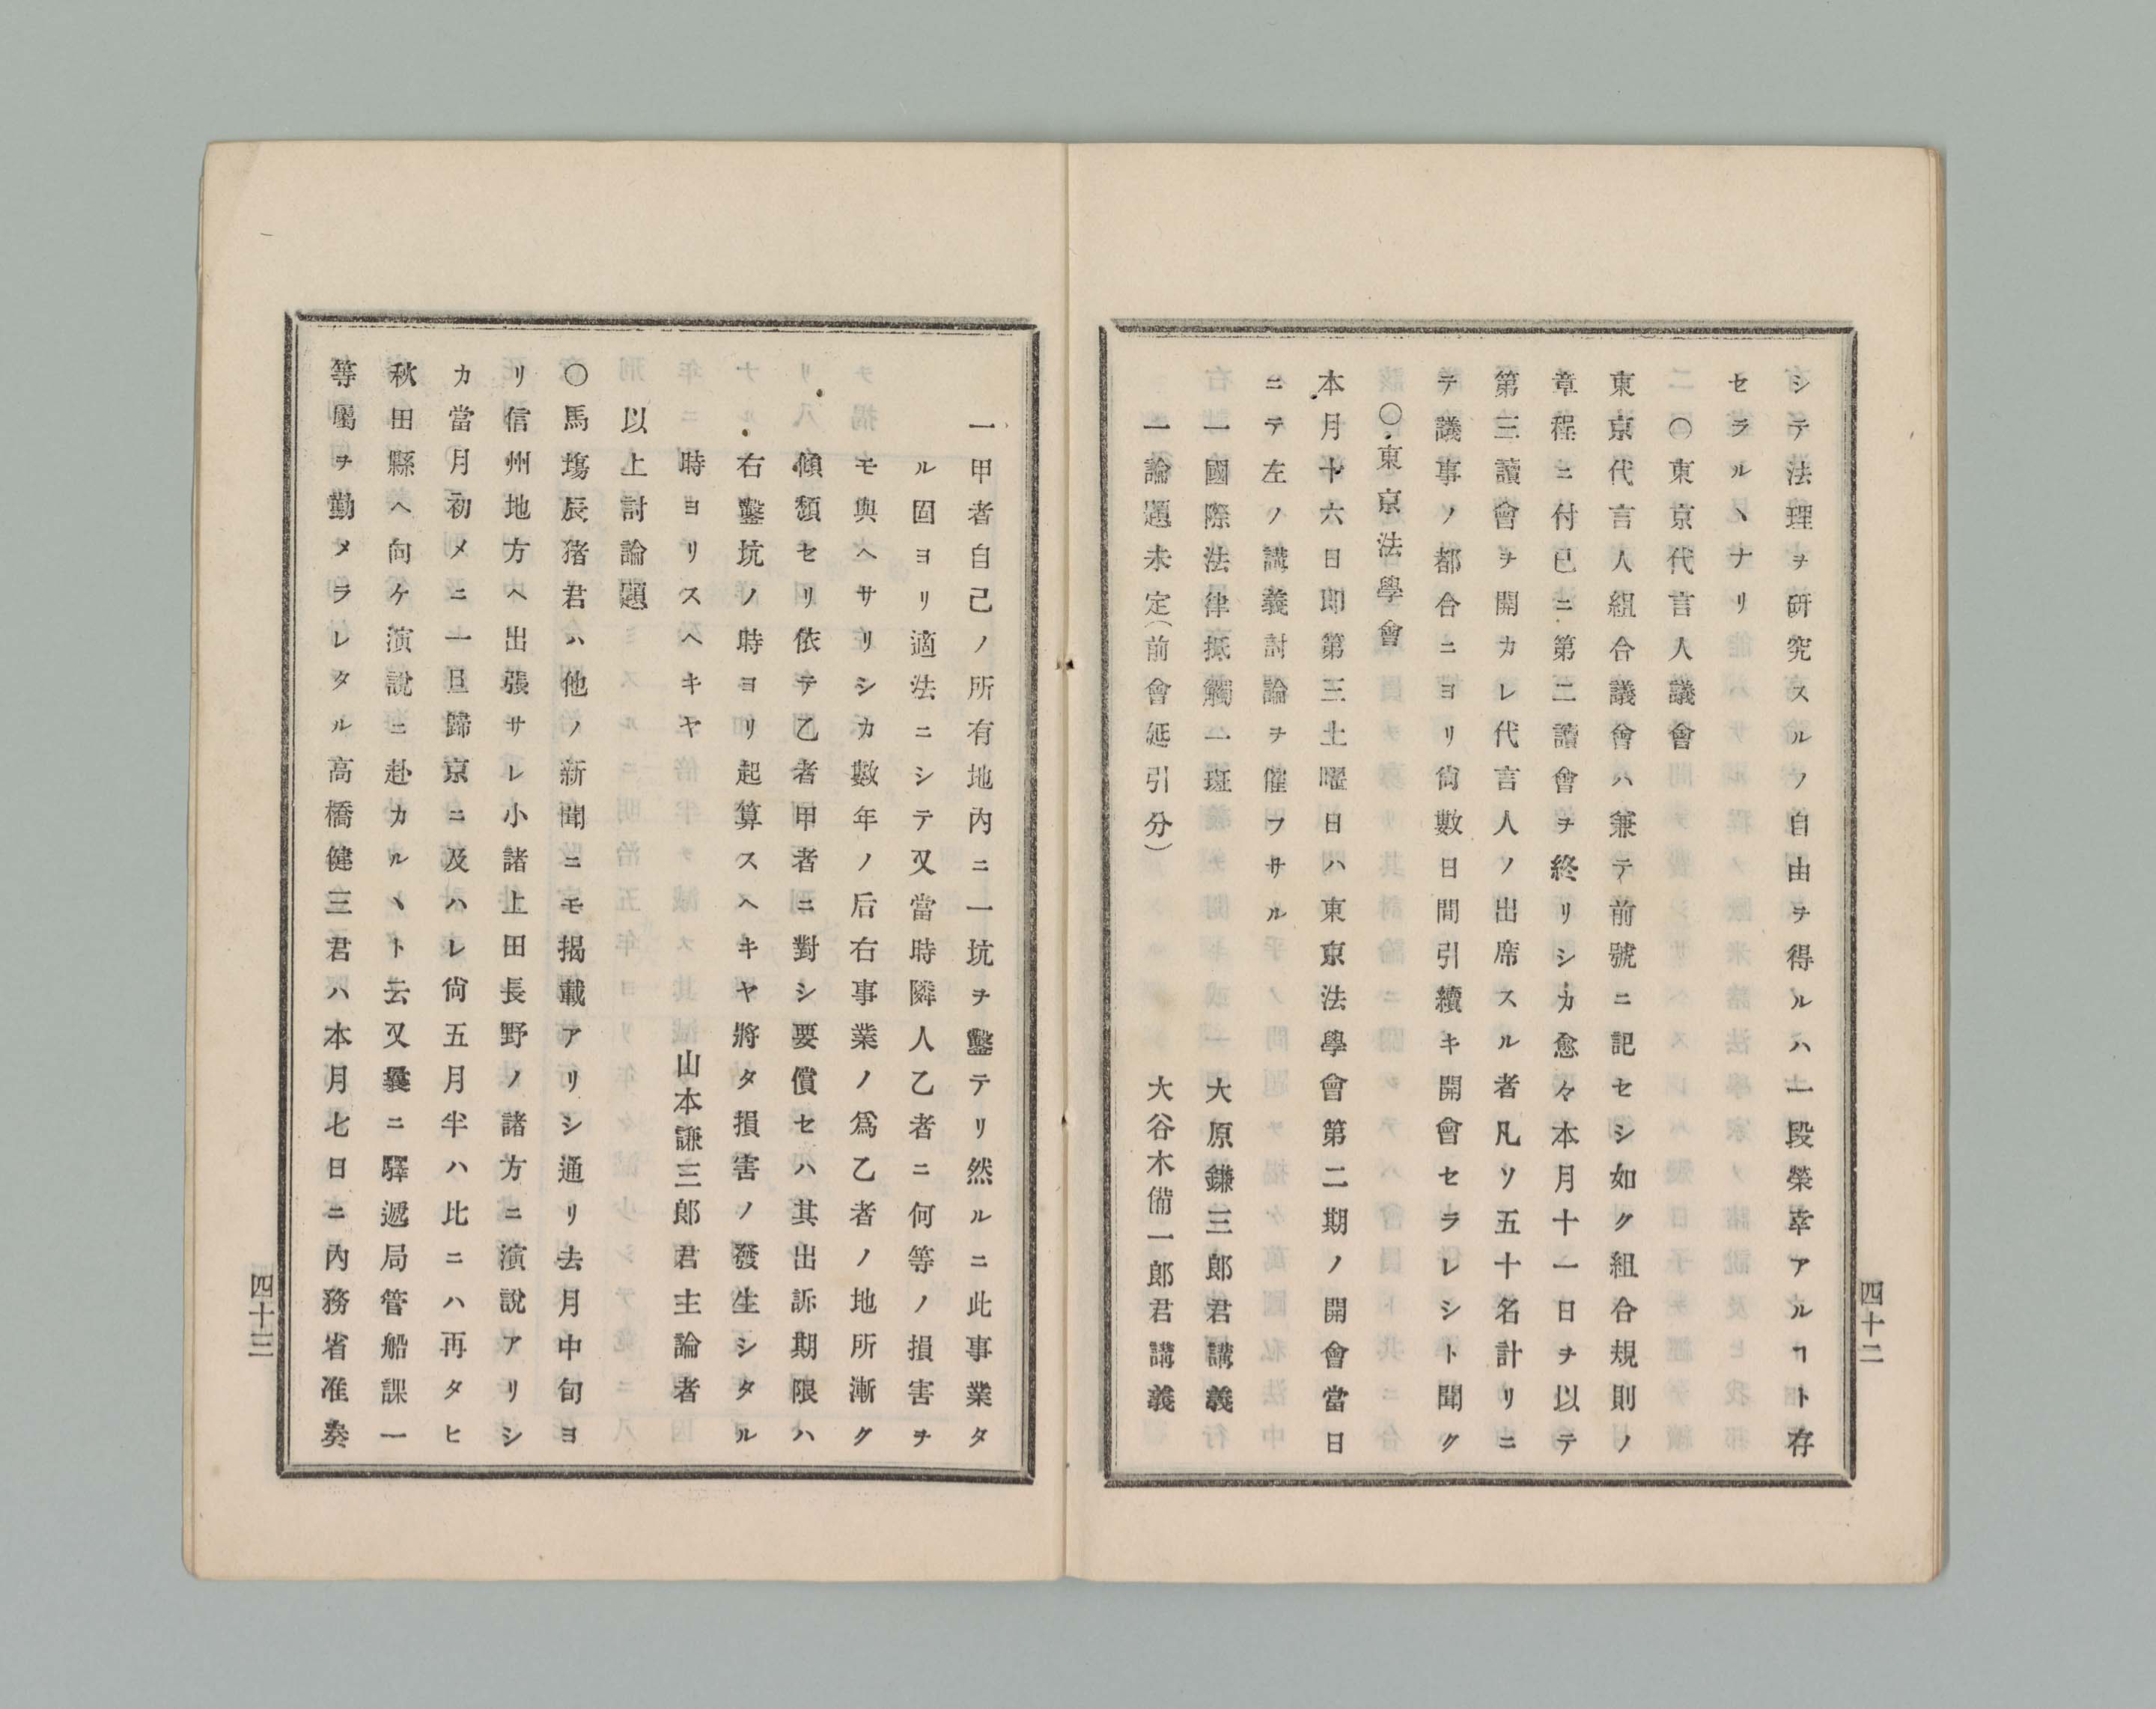 シテ法理ヲ研究スルノ自由ヲ得ルハ一段榮幸アルヿト存
セラルヽナリ
〇東京代言人議會
東京代言人組合議會ハ兼テ前號ニ記セシ如ク組合規則ノ
章程ニ付已ニ第二讀會ヲ終リシカ愈々本月十一日ヲ以テ
第三讀會ヲ開カレ代言人ノ出席スル者凡ソ五十名計リニ
テ議事ノ都合ニヨリ尙數日間引續キ開會セラレシト聞ク
〇東京法學會
本月十六日即第三土曜日ハ東京法學會第二期ノ開會當日
ニテ左ノ講義討論ヲ催フサル
一國際法律抵觸一斑 大原鎌三郎君講義
一論題未定(前會延引分) 大谷木備一郎君講義
四十二
一甲者自己ノ所有地內ニ一坑ヲ鑿テリ然ルニ此事業タ
ル固ヨリ適法ニシテ又當時隣人乙者ニ何等ノ損害ヲ
モ與ヘサリシカ數年ノ后右事業ノ爲乙者ノ地所漸ク
傾頽セリ依テ乙者甲者ニ對シ要償セハ其出訴期限ハ
右鑿坑ノ時ヨリ起算スヘキヤ將タ損害ノ發生シタル
時ヨリスヘキヤ 山本謙三郎君主論者
以上討論題
〇馬塲辰猪君ハ他ノ新聞ニモ揭載アリシ通リ去月中旬ヨ
リ信州地方ヘ出張サレ小諸上田長野ノ諸方ニ演說アリシ
カ當月初メニ一旦歸京ニ及ハレ尙五月半ハ比ニハ再タヒ
秋田縣ヘ向ケ演說ニ赴カルヽト云又曩ニ驛遞局管船課一
等屬ヲ勤メラレタル高橋健三君ハ本月七日ニ內務省准奏
四十三